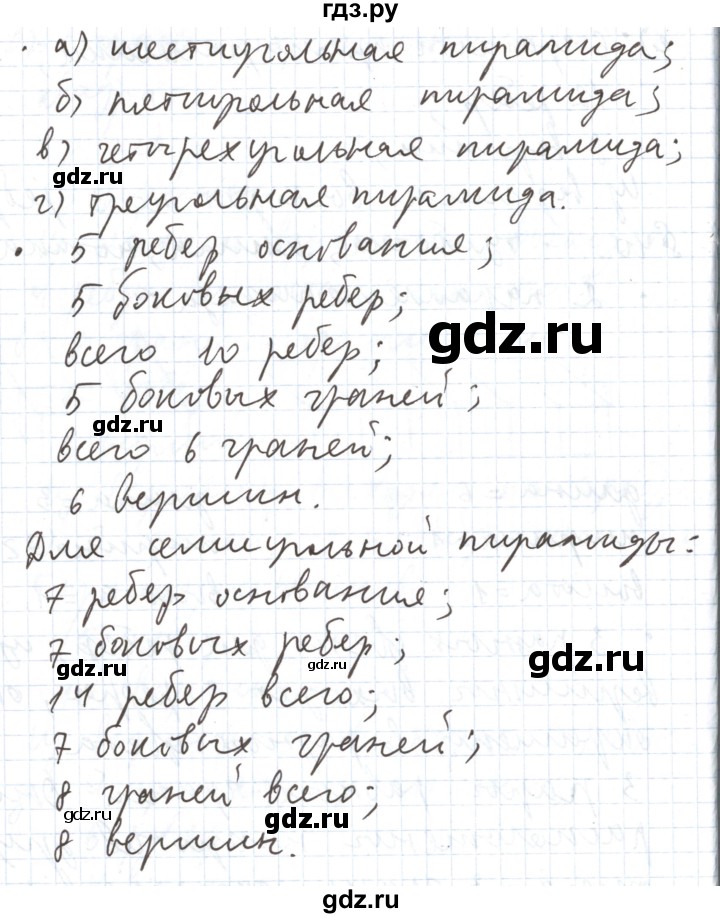 гдз.ру
· а) шестиугольная пирамида;
б) пятиугольная пирамида;
в) четырехугольная пирамида;
gdz.ru
г) треугольная пирамида.
· 5 ребер основания;
5 боковых ребер;
gdz.ru
всего 10 ребер;
5 боковых граней;
gdz.ru
всего 6 граней;
6 вершин.
Для семиугольной пирамиды:
7 ребер основания;
7 боковых ребер;
gdz.ru
gdz.ru
gdz.ru
14 ребер всего;
7 боковых граней;
8 граней всего;
gdz.ru
gdz.ru
8 вершин.
gdz.ru